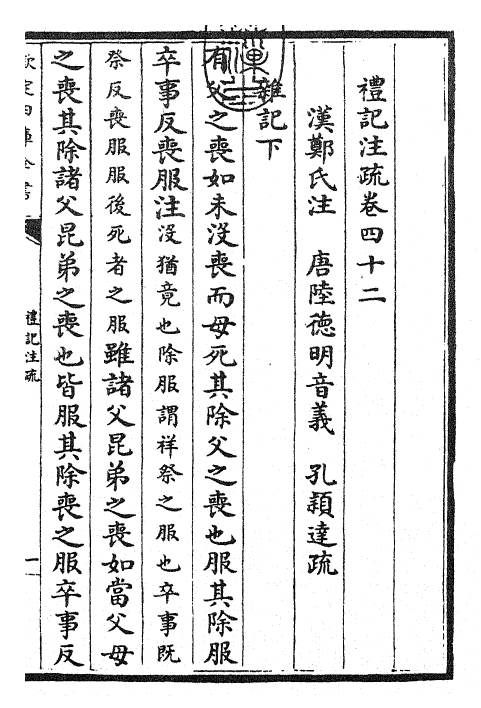 禮記注疏卷四十二
漢鄭氏注　唐陸德明音義　孔穎達疏
雜記下
有父之喪如未沒喪而母死其除父之喪也服其除服
卒事反喪服注沒猶竟也除服謂祥祭之服也卒事既
祭反喪服服後死者之服雖諸父昆弟之喪如當父母
之喪其除諸父昆弟之喪也皆服其除喪之服卒事反
欽定四庫全書
禮記注疏
一